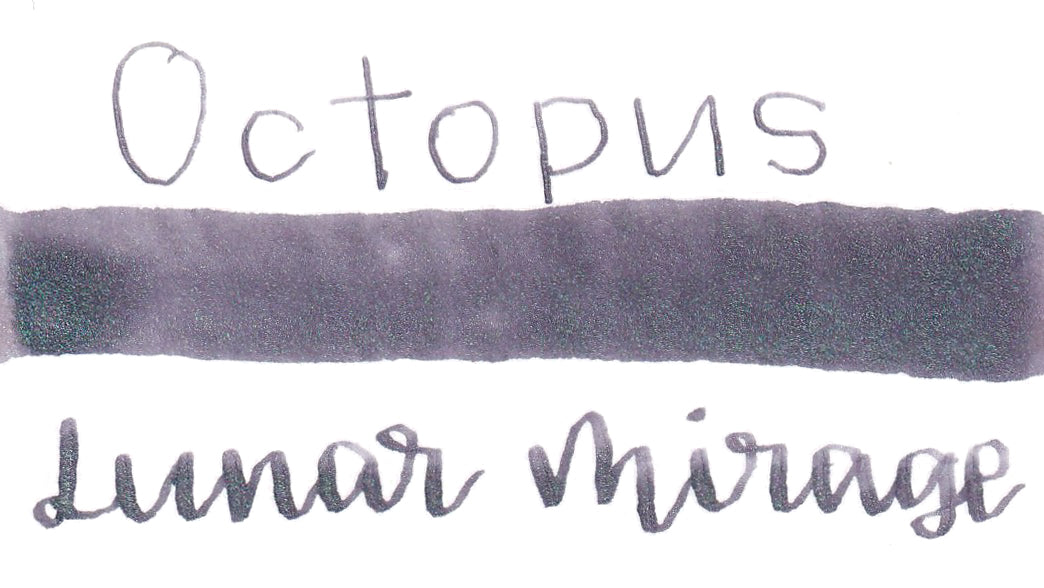 Octopus
Lunar Mirage